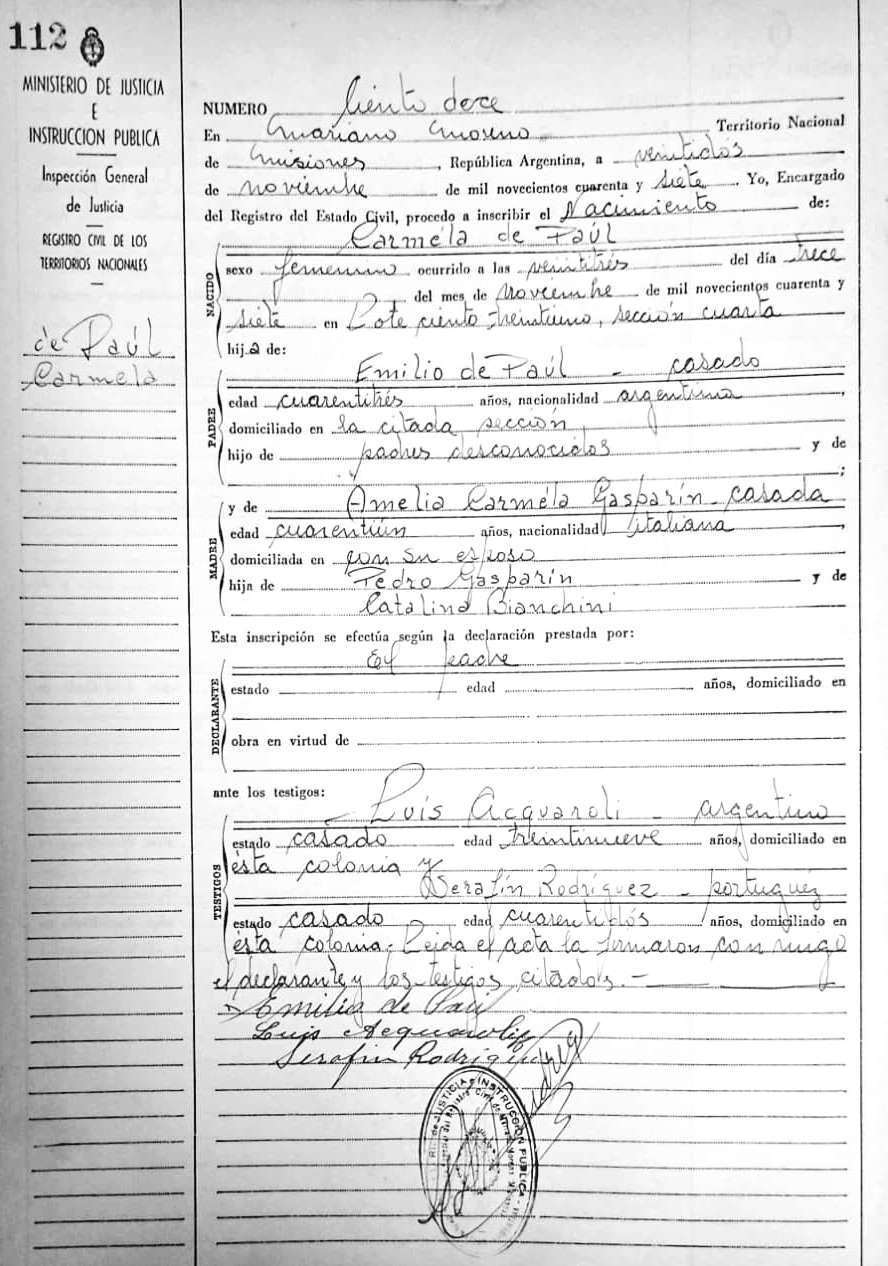 112
MINISTERIO DE JUSTICIA
E
INSTRUCCION PUBLICA
Inspección General
de Justicia
REGISTRO CIVIL DE LOS
TERRITORIOS NACIONALES
de Paúl
Carmela
NUMERO Ciento doce
En Mariano Moreno Territorio Nacional
de Misiones, República Argentina, a veintidós
de noviembre de mil novecientos cuarenta y siete. Yo, Encargado
del Registro del Estado Civil, procedo a inscribir el Nacimiento de:
Carmela de Paúl
NACIDO
sexo femenino ocurrido a las veintitrés del día trece
, del mes de noviembre de mil novecientos cuarenta y
siete en Lote ciento treintiuno, sección cuarta
hij.a de:
Emilio de Paúl - casado
PADRE
edad cuarentitrés años, nacionalidad argentina,
domiciliado en la citada sección,
hijo de padres desconocidos y de
;
y de Amelia Carmela Gasparín - casada
MADRE
edad cuarentiún años, nacionalidad italiana,
domiciliada en con su esposo
hija de Pedro Gasparín y de
Catalina Bianchini
Esta inscripción se efectúa según la declaración prestada por:
El padre
DECLARANTE
estado edad años, domiciliado en
obra en virtud de
ante los testigos:
Luis Acquaroli - argentino
TESTIGOS
estado casado edad treintinueve años, domiciliado en
ésta colonia y
Serafín Rodríguez - portuguéz
estado casado edad cuarentidós años, domiciliado en
ésta colonia. Leida el acta la firmaron con migo
el declarante y los testigos citados. -
Emilio de Paul
Luis Acquaroli
Serafin Rodriguez
JUSTICIA E INSTRUCCION PUBLICA